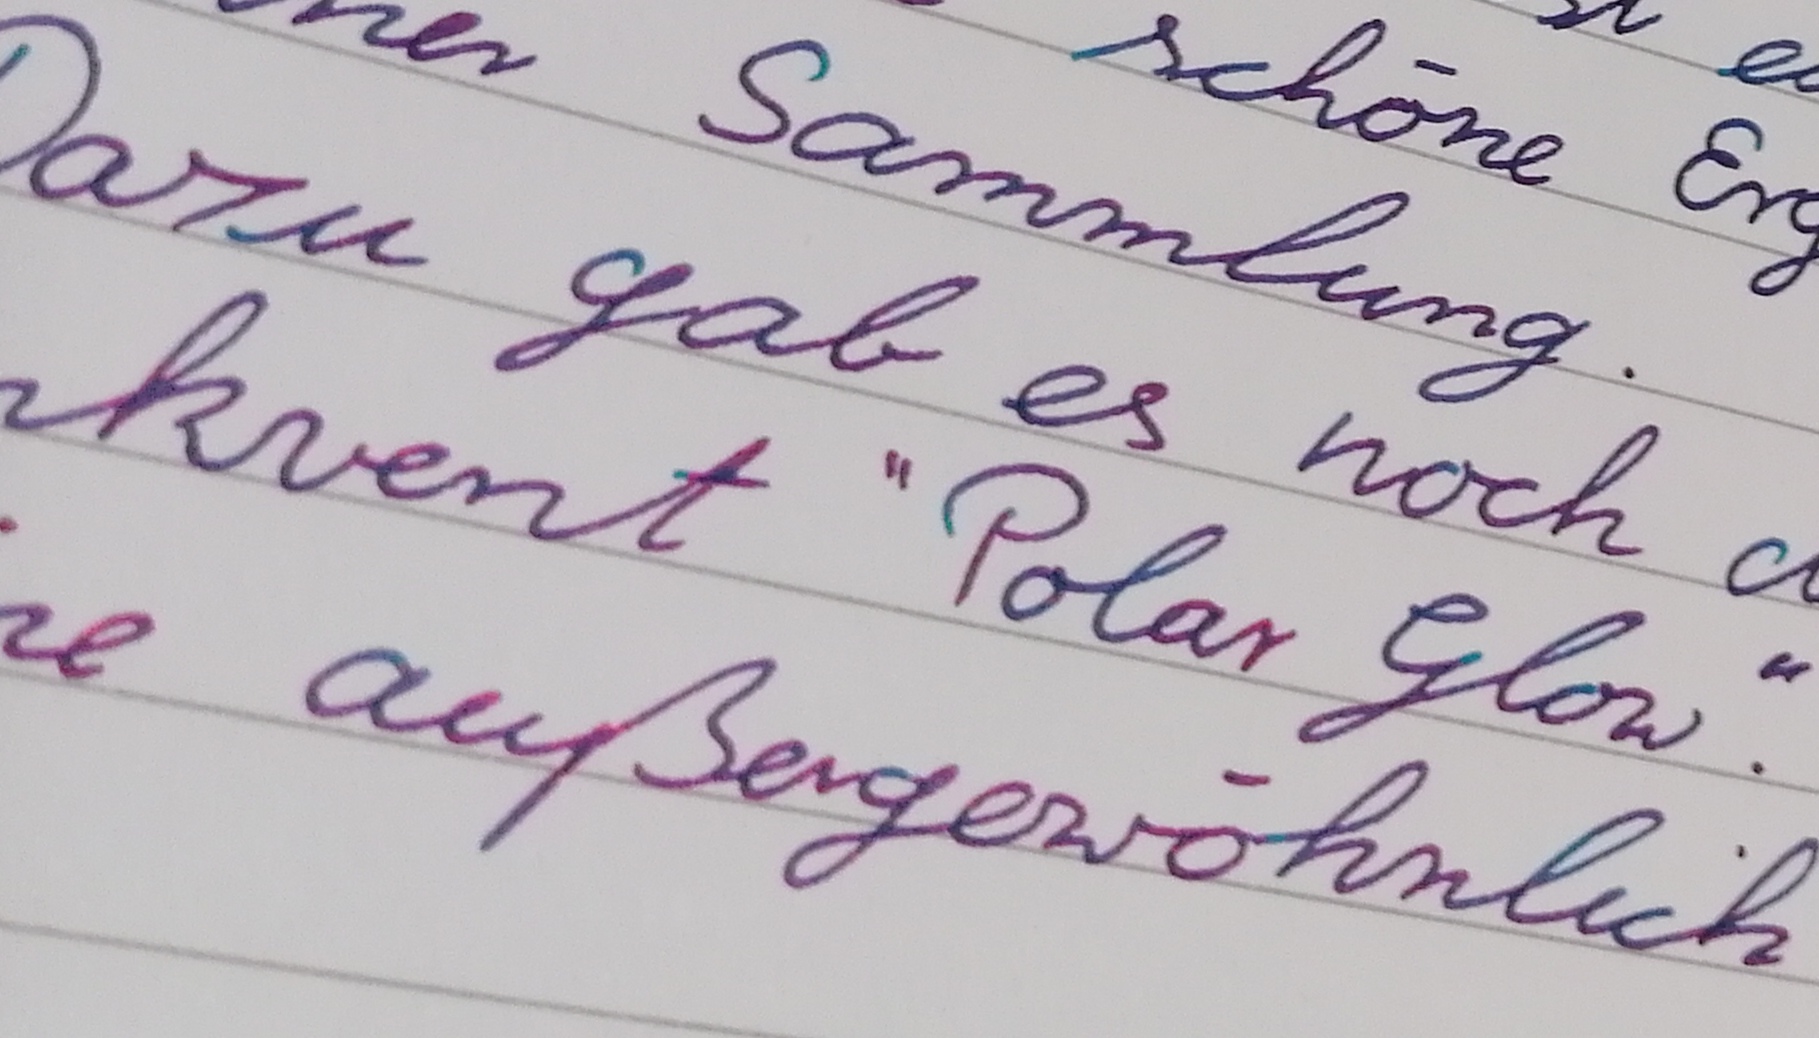 schöne Erg
ner Sammlung.
Dazu gab es noch d
nkvent "Polar Glow".
ne außergewöhnlich